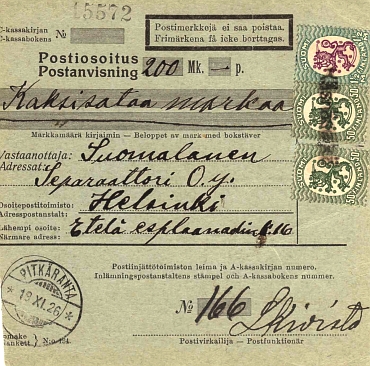 15572
C-kassakirjan
C-kassabokens № 
Postimerkkejä ei saa poistaa.
Frimärkena få icke borttagas.
Postiosoitus
Postanvisning 200 Mk. — p.
Kaksisataa markaa
Markkamäärä kirjaimin - Beloppet av mark med bokstäver
Vastaanottaja: Suomalanen
Adressat: Separaattori O.y.
Osoitepostitoimisto: Helsinki
Adresspostanstalt:
Lähempi osoite: Etelä esplaanadink. 16
Närmare adress:
SUOMI FINLAND
50 50
50 50
Postiinjättötoimiston leima ja A-kassakirjan numero.
Inlämningspostanstaltens stämpel och A-kassabokens numero.
PITKÄRANTA
* 19.XI.26 *
№ 166
Postivirkailija - Postfunktionär